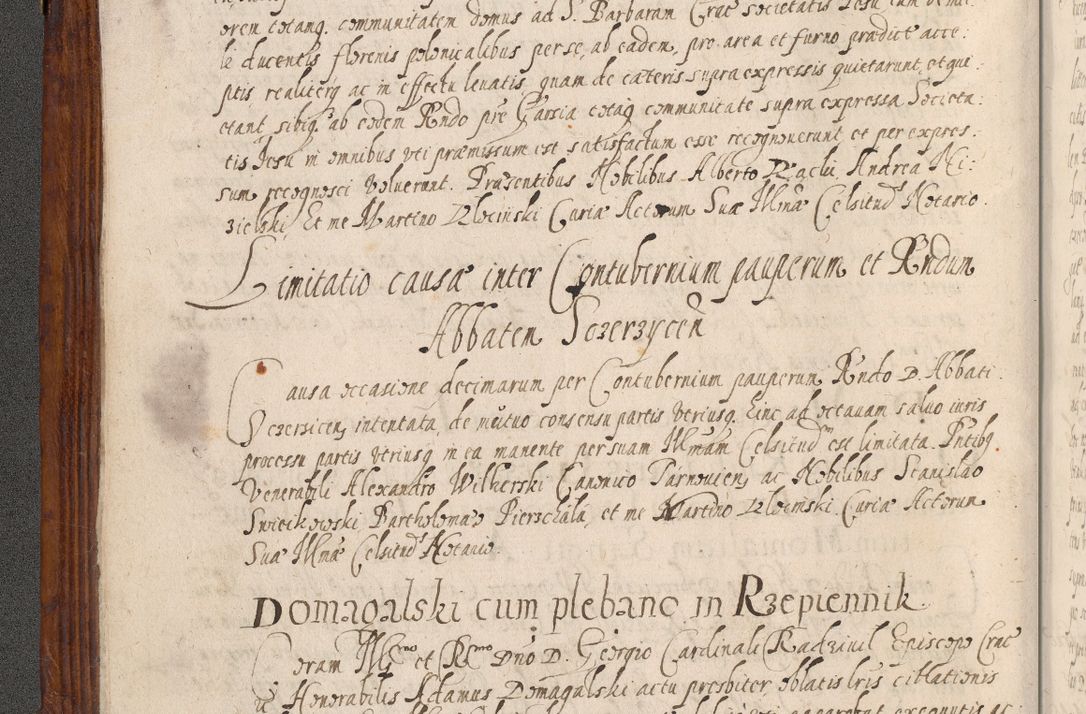 orem totamq. communitatem domus ad S. Barbaram Crac societatis Iesu cum
le ducentis florenis polonicalibus per se, ab eadem, pro area et furno prædict acce:
ptis realiterq ac in effectu levatis, quam de cæteris supra expressis quietarunt, et qui:
etant, sibiq. ab eodem Rndo pre Garsia totaq communitate supra expressa Societa:
tis Iesu in omnibus uti præmissum est satisfactum esse recognoverunt et per expres:
sum recognosci voluerunt. Præsentibus Nobilibus Alberto Dzachi, Andrea Ni:
zielski, Et me Martino Dlocinski Curiæ Actorum Suæ Illmæ Celsitud Notario.
Limitatio causæ inter Contubernium pauperum et Rndum
Abbatem Sczerzycen
Causa occasione decimarum per Contubernium pauperum Rndo D. Abbati
Sczerzicen, intentata, de mutuo consensu partis utriusq. hinc ad octavam salvo iuris
processu partis utriusq in ea manente per suam Illmam Celsitudm est limitata. Pntibq
Venerabili Alexandro Wilkerski Canonico Tarnovien, ac Nobilibus Stanislao
Swiecikowski Bartholomæo Pierzchala, et me Martino Dlocinski Curiæ Actorum
Suæ Illmæ Celsitud Notario
Domagalski cum plebano in Rzepiennik
Coram Illmo et Rmo Dno D. Georgio Cardinali Radzivil Episcopo Crac
Venerabilis Adamus Domagalski actu presbiter, oblatis lris citlationis